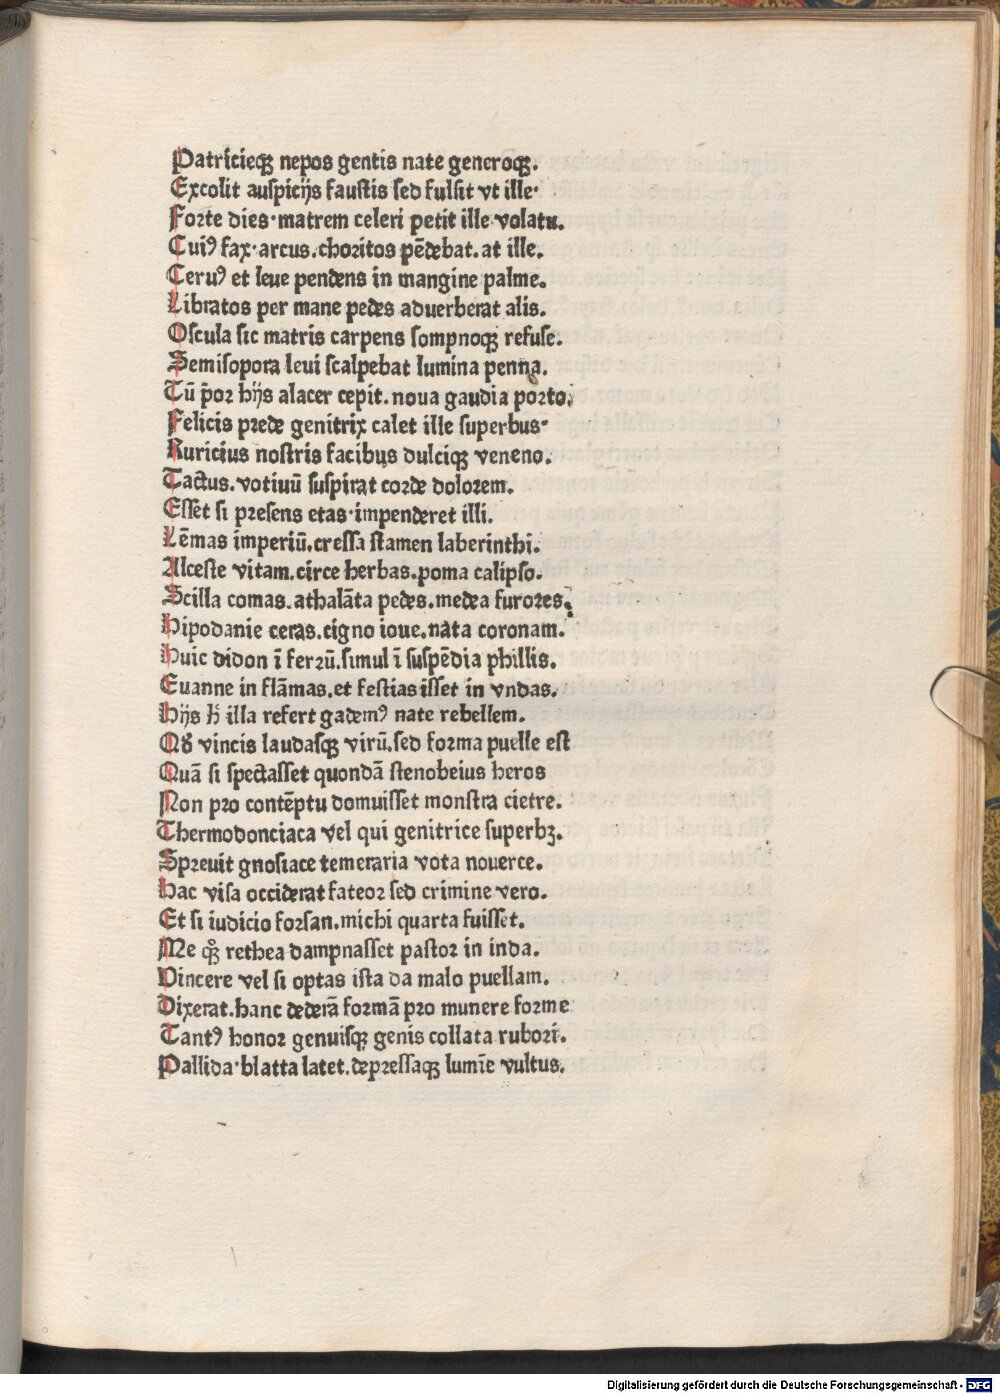 Patricieqꝫ nepos gentis nate generoqꝫ.
Excolit auspicijs faustis sed fulsit vt ille·
Forte dies·matrem celeri petit ille volatu.
Cuiꝰ fax·arcus.choritos pēdebat.at ille.
Ceruꝰ et leue pendens in mangine palme.
Libratos per mane pedes aduerberat alis.
Oscula sic matris carpens sompnoqꝫ refuse.
Semisopora leui scalpebat lumina penna.
Tū p̄or hijs alacer cepit.noua gaudia porto.
Felicis prede genitrix calet ille superbus·
Ruricius nostris facibus dulciqꝫ veneno.
Tactus.votiuū suspirat corde dolorem.
Esset si presens etas·impenderet illi.
Lēmas imperiū.cressa stamen laberinthi.
Alceste vitam.circe herbas.poma calipso.
Scilla comas.athalāta pedes.medea furores.
Hipodanie ceras.cigno ioue.nata coronam.
Huic didon ī ferrū.simul ī suspēdia phillis.
Euanne in flāmas.et festias isset in vndas.
Hijs illa refert gademꝰ nate rebellem.
vincis laudasqꝫ virū.sed forma puelle est
Quā si spectasset quondā stenobeius heros
Non pro contēptu domuisset monstra cietre.
Thermodonciaca vel qui genitrice superbꝫ.
Spreuit gnosiace temeraria vota nouerce.
Hac visa occiderat fateor sed crimine vero.
Et si iudicio forsan.michi quarta fuisset.
Me rethea dampnasset pastor in inda.
Vincere vel si optas ista da malo puellam.
Dixerat.hanc dederā formā pro munere forme
Tantꝰ honor genuisqꝫ genis collata rubori.
Pallida·blatta latet.depressaqꝫ lumīe vultus.
Digitalisierung gefördert durch die Deutsche Forschungsgemeinschaft - DFG